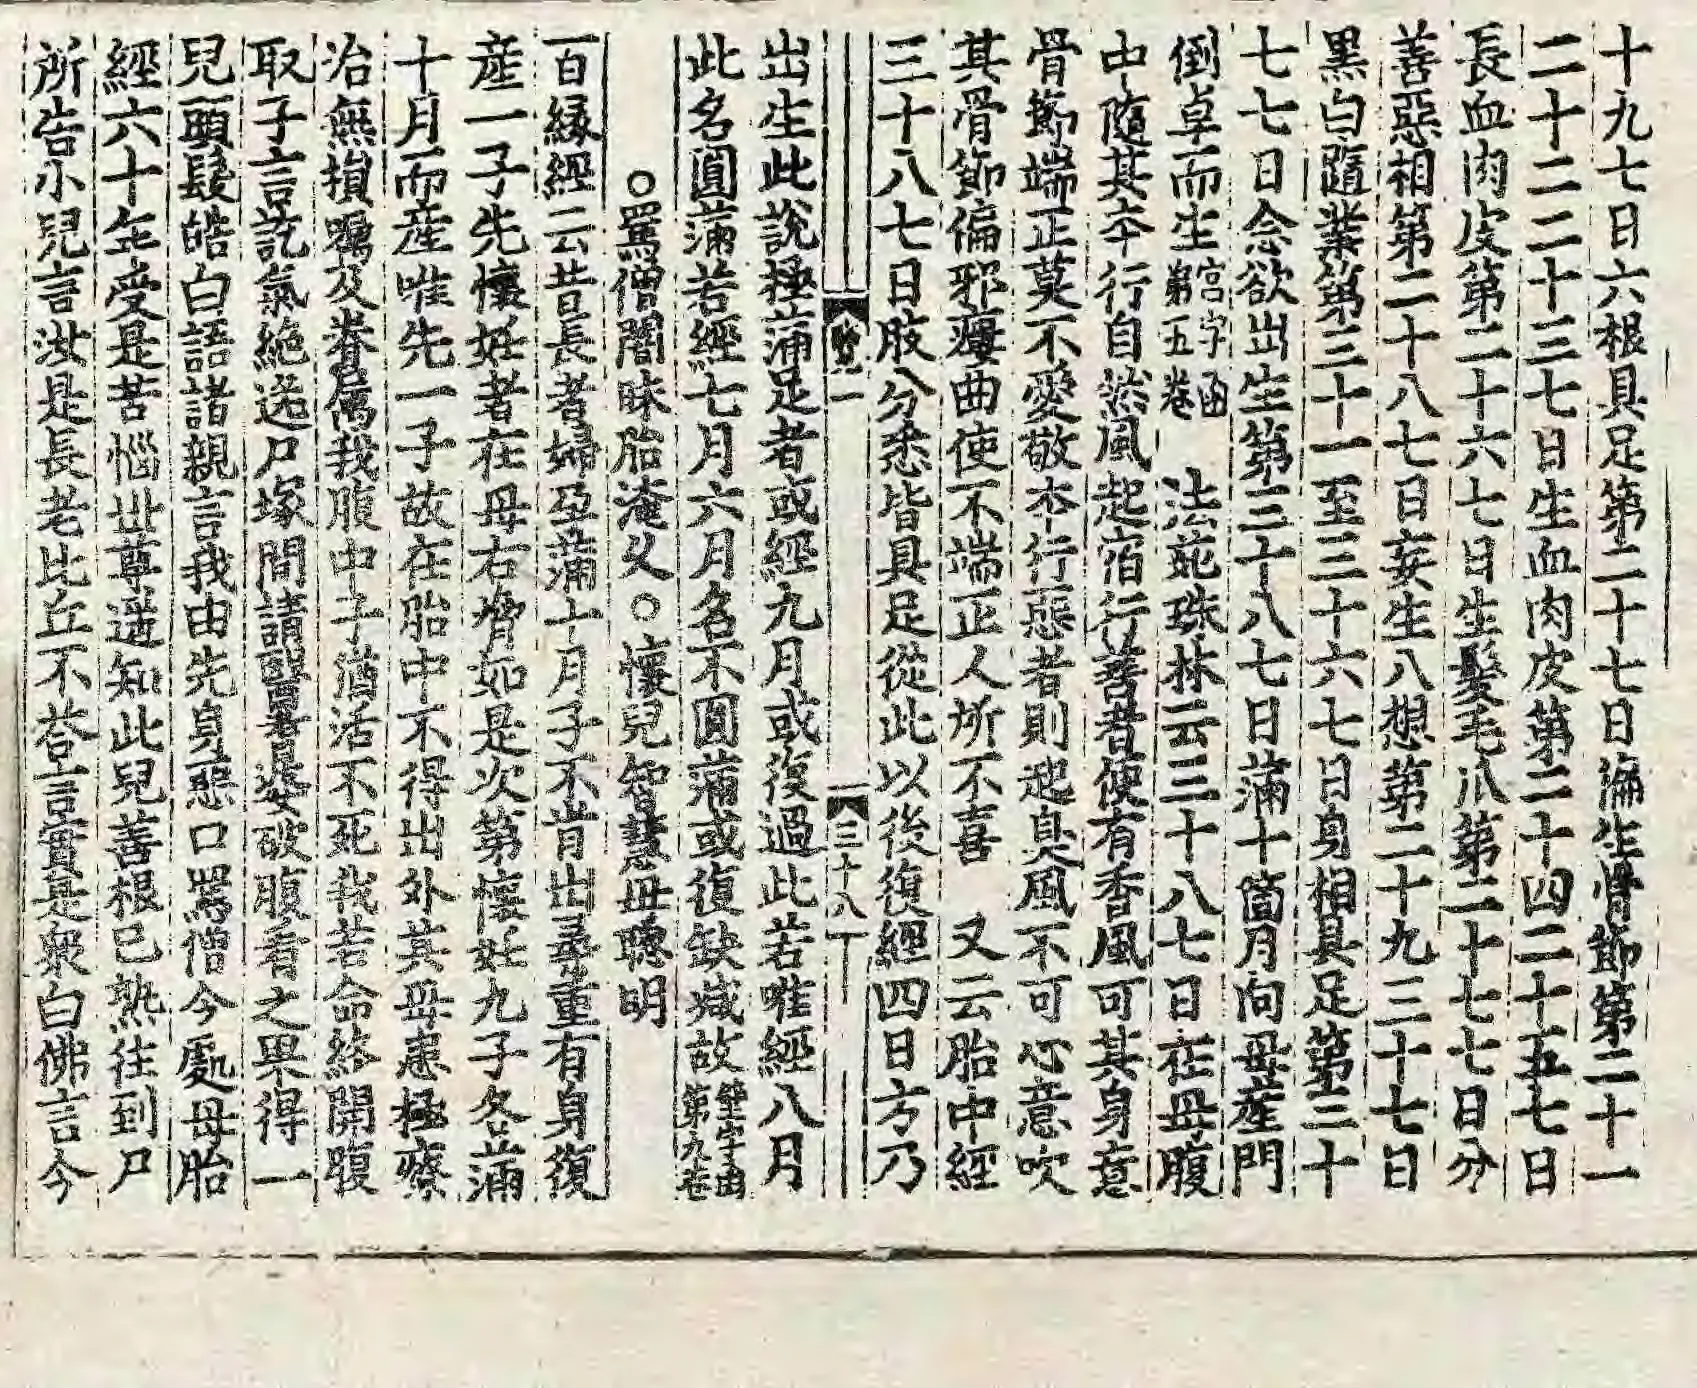 十九七日六根具足第二十七日滿生骨節第二十一
二十二二十三七日生血肉皮第二十四二十五七日
長血肉皮第二十六七日生髮毛爪第二十七七日分
善惡相第二十八七日妄生八想第二十九三十七日
黑白隨業第三十一至三十六七日身相具足第三十
七七日念欲出生第三十八七日滿十箇月向母產門
倒卓而生宮字函第五卷　法苑珠林云三十八七日在母腹
中隨其本行自然風起宿行善者便有香風可其身意
骨節端正莫不愛敬本行惡者則起臭風不可心意吹
其骨節偏邪瘻曲使不端正人所不喜　又云胎中經
三十八七日肢分悉皆具足從此以後復經四日方乃
三十八
出生此說極滿足者或經九月或復過此若唯經八月
此名圓滿若經七月六月名不圓滿或復缺減故第九卷
○罵僧闇昧胎淹久○懷兒智慧母聰明
百緣經云昔長者婦孕滿十月子不肯出尋重有身復
產一子先懷妊者在母右脅如是次第懷妊九子各滿
十月而產唯先一子故在胎中不得出外其母患極療
治無損囑及眷屬我腹中子猶活不死我若命終開腹
取子言訖氣絕送尸塚間請醫耆婆破腹看之果得一
兒頭髮皓白語諸親言我由先身惡口罵僧今處母胎
經六十年受是苦惱世尊遙知此兒善根已熟往到尸
所告小兒言汝是長老比丘不荅言實是衆白佛言今